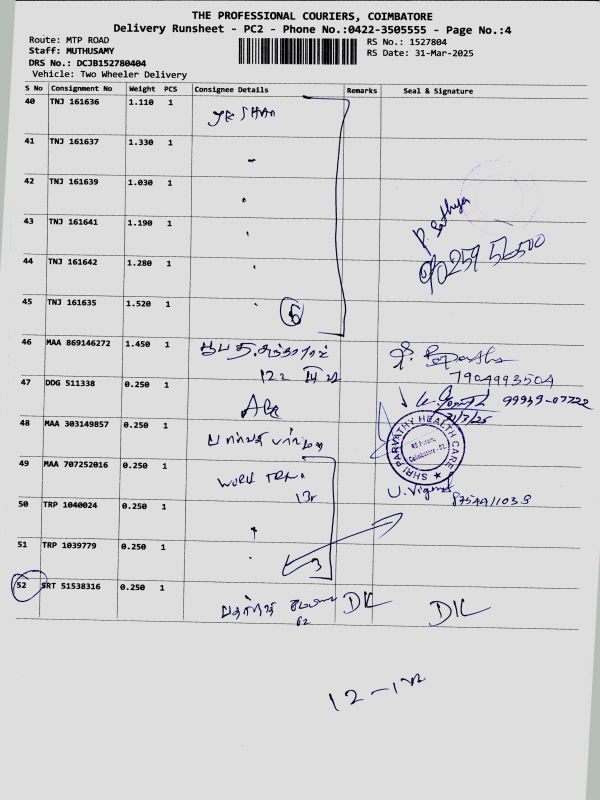 THE PROFESSIONAL COURIERS, COIMBATORE
Delivery Runsheet - PC2 - Phone No.:0422-3505555 - Page No.:4
Route: MTP ROAD
RS No.: 1527804
Staff: MUTHUSAMY
RS Date: 31-Mar-2025
DRS No.: DCJB152780404
Vehicle: Two Wheeler Delivery
S No Consignment No Weight PCS Consignee Details Remarks Seal & Signature
40 TNJ 161636 1.110 1
41 TNJ 161637 1.330 1
42 TNJ 161639 1.030 1
43 TNJ 161641 1.190 1
P. Sathya
44 TNJ 161642 1.280 1
90259 56500
45 TNJ 161635 1.520 1
46 MAA 869146272 1.450 1
7904993504
47 DDG 511338 0.250 1
99939-07722
31/3/25
48 MAA 303149857 0.250 1
SHRI PARVATHY HEALTH CARE
49 MAA 707252016 0.250 1
WORK
50 TRP 1040024 0.250 1
51 TRP 1039779 0.250 1
3
52 SRT 51538316 0.250 1
DIL DIL